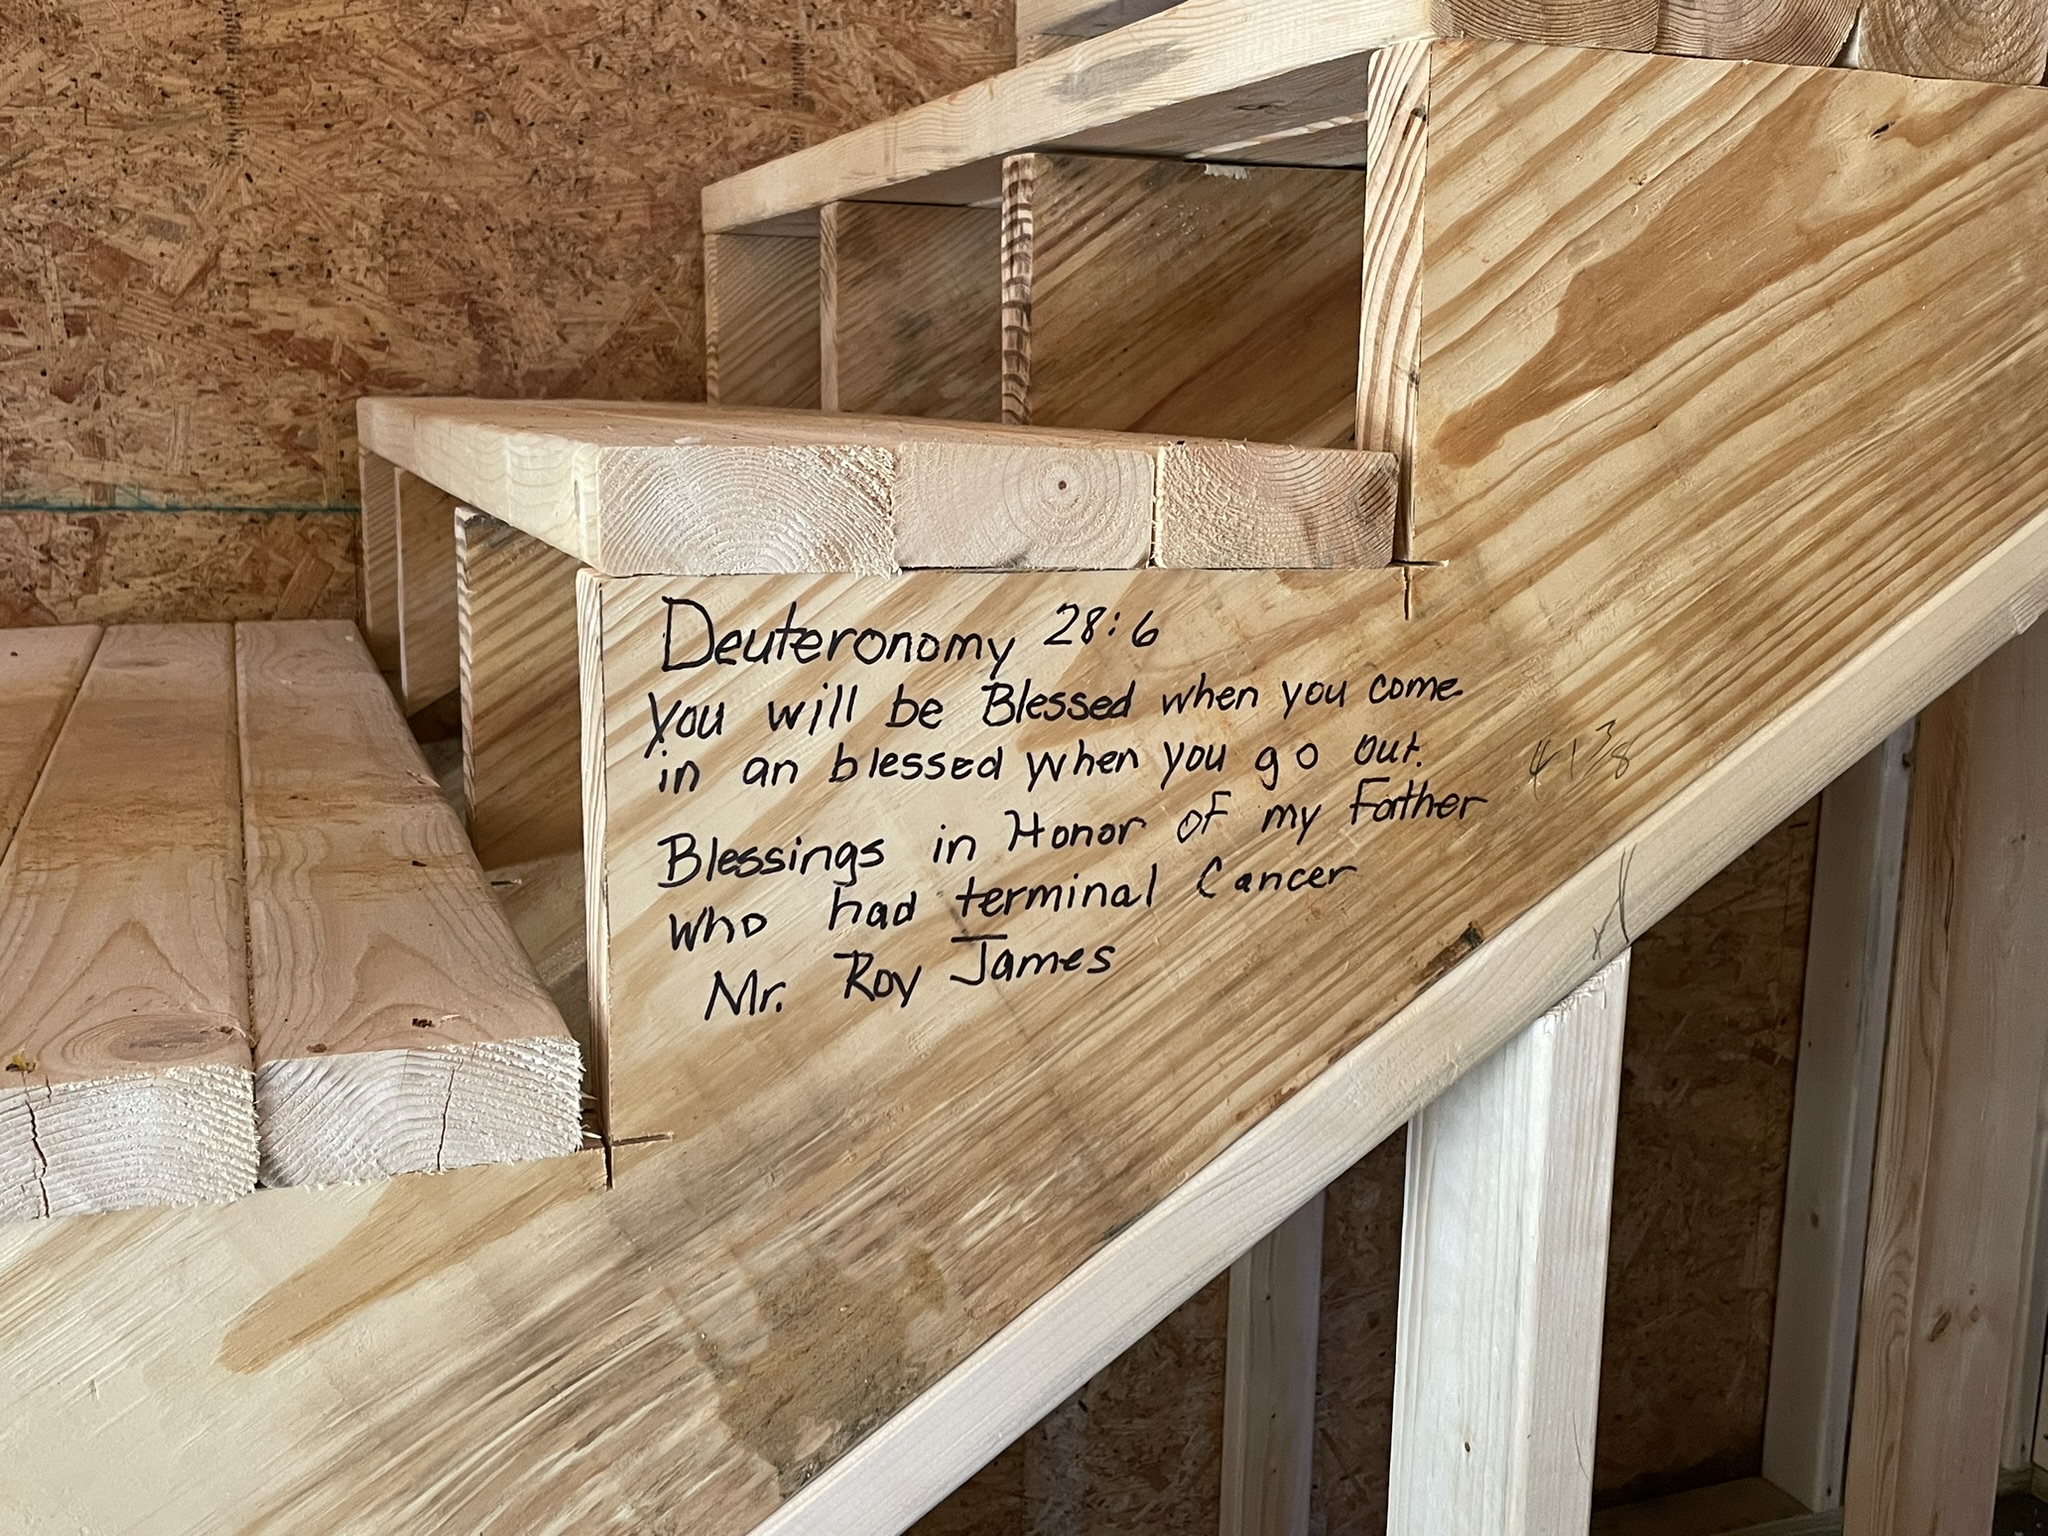 Deuteronomy 28:6
You will be Blessed when you come
in an blessed when you go out.
Blessings in Honor of my Father
who had terminal Cancer
Mr. Roy James
41 3/8